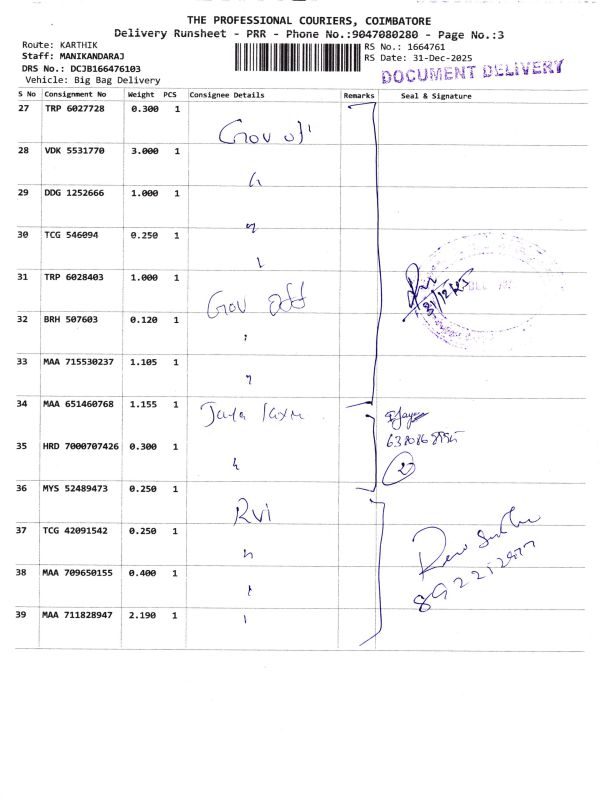 THE PROFESSIONAL COURIERS, COIMBATORE
Delivery Runsheet - PRR - Phone No.:9047080280 - Page No.:3
Route: KARTHIK
Staff: MANIKANDARAJ
DRS No.: DCJB166476103
Vehicle: Big Bag Delivery
RS No.: 1664761
RS Date: 31-Dec-2025
DOCUMENT DELIVERY
S No Consignment No Weight PCS Consignee Details Remarks Seal & Signature
27 TRP 6027728 0.300 1 Gov off
28 VDK 5531770 3.000 1 "
29 DDG 1252666 1.000 1 "
30 TCG 546094 0.250 1 "
31 TRP 6028403 1.000 1 Gov off
31/12/25
32 BRH 507603 0.120 1 "
33 MAA 715530237 1.105 1 "
34 MAA 651460768 1.155 1 Jaya laxmi
35 HRD 7000707426 0.300 1 "
36 MYS 52489473 0.250 1 Rvi
37 TCG 42091542 0.250 1 "
38 MAA 709650155 0.400 1 "
39 MAA 711828947 2.190 1 "